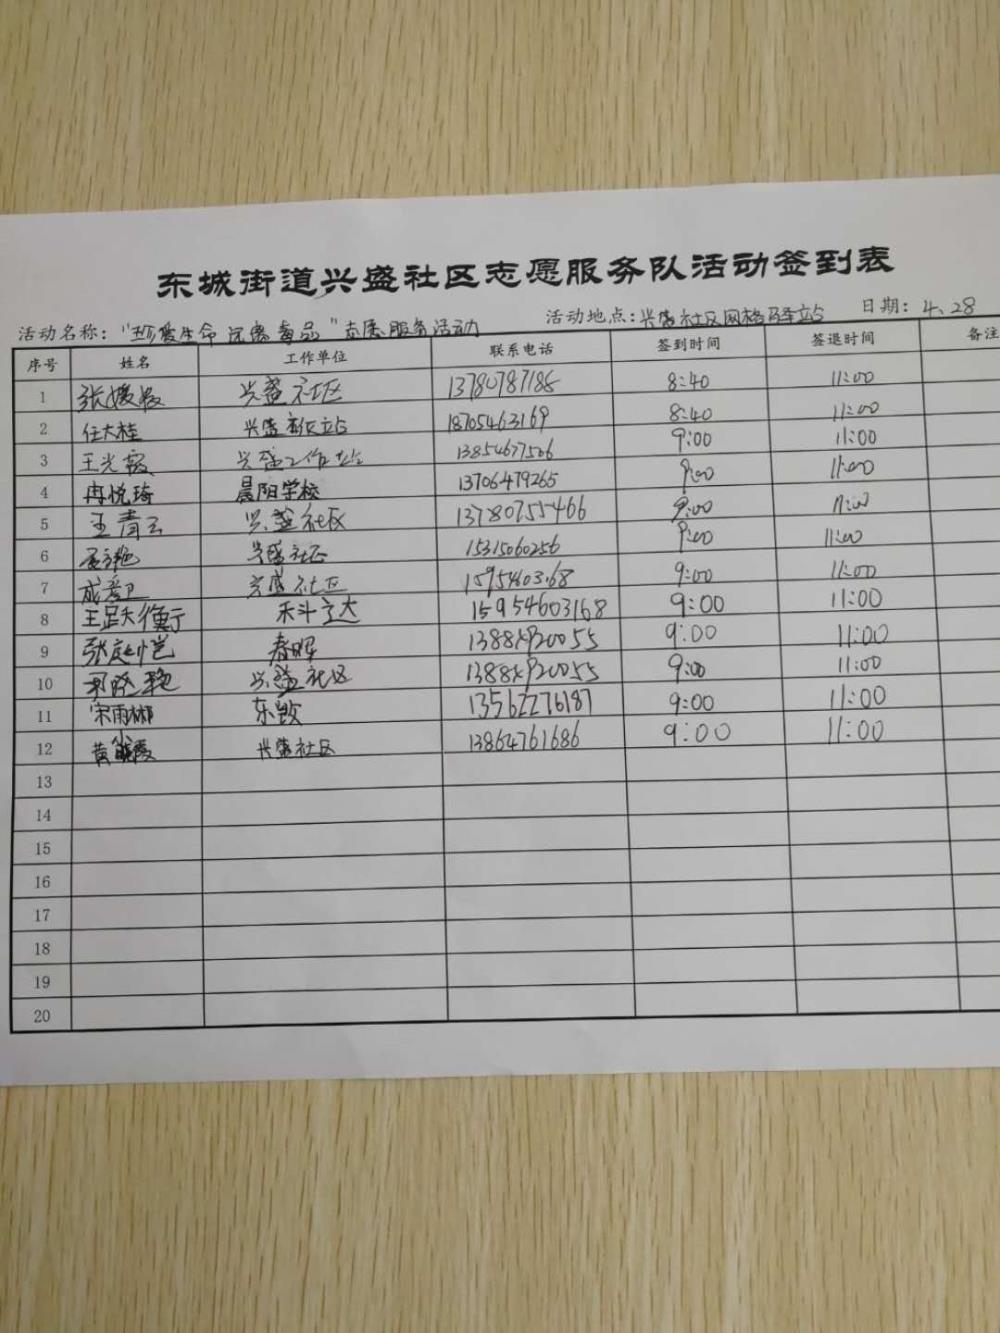 东城街道兴盛社区志愿服务队活动签到表
活动名称："珍爱生命 远离毒品"志愿服务活动 活动地点：兴盛社区网格驿站 日期：4、28
序号 姓名 工作单位 联系电话 签到时间 签退时间 备注
1 张媛 兴盛社区 13780787186 8:40 11:00
2 任大桂 兴盛 站 18705463169 8:40 11:00
3 王光霞 兴盛工作站 13854677506 9:00 11:00
4 冉悦琦 晨阳学校 13706479265 9:00 11:00
5 王青云 兴盛社区 13780755466 9:00 11:00
6 兴盛社区 15315060256 9:00 11:00
7 成爱卫 兴盛社区 9:00 11:00
8 王跃衡 科达 15954603168 9:00 11:00
9 张庭恺 春晖 9:00 11:00
10 郭晓艳 兴盛社区 9:00 11:00
11 宋雨彬 东凯 13562276187 9:00 11:00
12 黄 霞 兴盛社区 13864761686 9:00 11:00
13
14
15
16
17
18
19
20